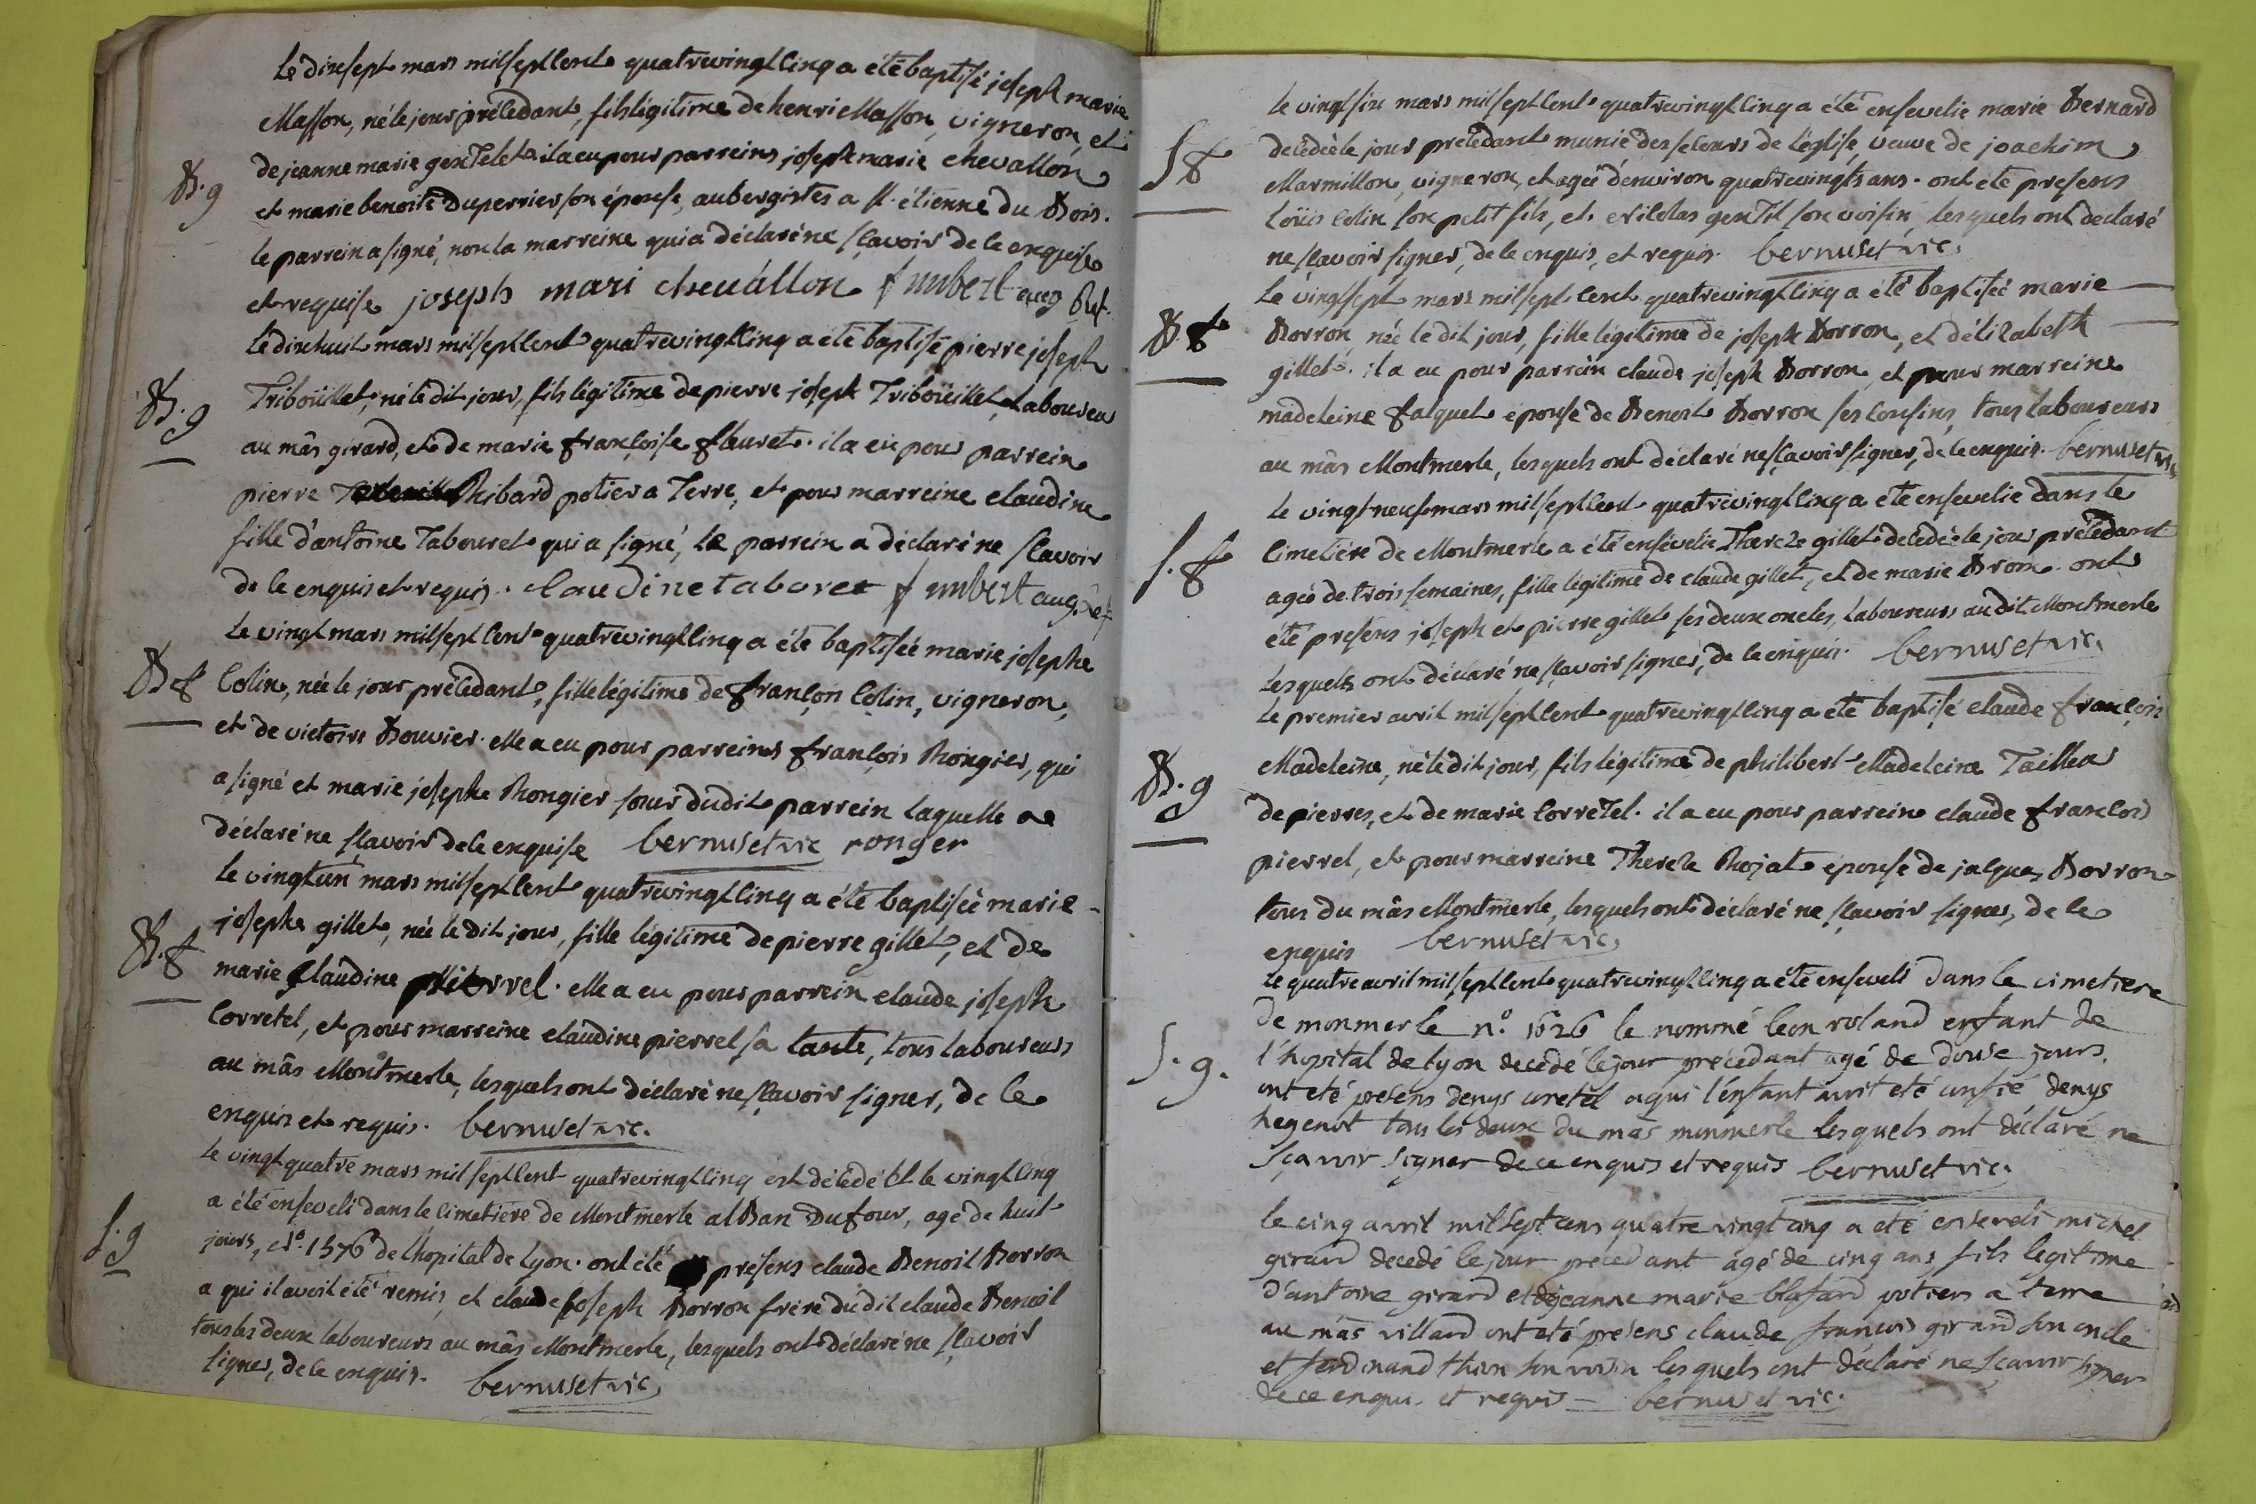 Le dixsept mars milseptcent quatrevingtcinq a été baptisé joseph marie
Masson, né le jour précédant, fils légitime de henri Masson, vigneron, et
B. g
de jeanne marie gentelet. il a eu pour parreins joseph marie chevallon
et marie benoite Duperrier son épouse, aubergistes a st. étienne du Bois.
le parrein a signé, non la marreine qui a déclaré ne sçavoir de ce enquise
et requise joseph mari chevállon f imbert aug
Le dixhuit mars milseptcent quatrevingtcinq a été baptisé pierre joseph
B. g
Triboüillet, né le dit jour, fils légitime de pierre joseph Triboüillet, Laboureur
au mâs girard, et de marie françoise fleuret. il a eu pour parrein
pierre Ribard potier a Terre, et pour marreine claudine
fille d'antoine Tabouret qui a signé, le parrein a déclaré ne sçavoir
de ce enquis et requis. claudine taboret f imbert aug
Le vingt mars milseptcent quatrevingtcinq a été baptisée marie josephe
B f
Colin, née le jour précédant, fille légitime de françois Colin, vigneron,
et de victoire Bouvier. elle a eu pour parreins françois Rongier, qui
a signé et marie josephe Rongier sœur dudit parrein laquelle a
déclaré ne sçavoir de ce enquise bernuset vic ronger
Le vingtun mars milseptcent quatrevingtcinq a été baptisée marie
josephe gillet, née le dit jour, fille légitime de pierre gillet, et de
B. f
marie Claudine pierrel. elle a eu pour parrein claude joseph
Corretel, et pour marreine claudine pierrel sa tante, tous laboureurs
au mâs Montmerle, lesquels ont déclaré ne sçavoir signer, de ce
enquis et requis. bernuset vic.
Le vingtquatre mars milseptcent quatrevingtcinq est décédé et le vingtcinq
a été enseveli dans le cimetière de Montmerle alban Dufour, agé de huit
S. g
jours, N°. 1576 de l'hopital de Lyon. ont été présens claude Benoit Borron
a qui il avoit été remis, et claude joseph Borron frère du dit claude Benoit
tous les deux laboureurs au mâs Montmerle, lesquels ont déclaré ne sçavoir
signer, de ce enquis. bernuset vic,
Le vingtsix mars milseptcent quatrevingtcinq a été ensevelie marie Bernard
S f
décédée le jour précédant munie des secours de l'église, veuve de joachim
Marmillon, vigneron, et agée d'environ quatrevingts ans. ont été présens
Loüis Colin son petit fils, et Nicolas gentil son voisin, lesquels ont déclaré
ne sçavoir signer, de ce enquis, et requis. bernuset vic.
Le vingtsept mars milseptcent quatrevingtcinq a été baptisée marie
B f
Borron née le dit jour, fille légitime de joseph Borron, et d'élizabeth
gillet. il a eu pour parrein claude joseph Borron et pour marreine
madeleine falquet épouse de Benoit Borron ses cousins, tous laboureurs
au mâs Montmerle, lesquels ont déclaré ne sçavoir signer, de ce enquis. bernuset vic
Le vingtneuf mars milseptcent quatrevingtcinq a été ensevelie dans le
S. f
Cimetière de Montmerle a été ensevelie Therèze gillet décédée le jour précédant
agée de trois semaines, fille légitime de claude gillet, et de marie Broin. ont
été présens joseph et pierre gillet ses deux oncles, laboureurs audit Montmerle
Lesquels ont déclaré ne sçavoir signer, de ce enquis. bernuset vic.
Le premier avril milseptcent quatrevingtcinq a été baptisé claude françois
B. g
Madeleine, né le dit jour, fils légitime de philibert Madeleine Tailleur
de pierres, et de marie Corretel. il a eu pour parrein claude françois
pierrel, et pour marreine Thereze Rozat épouse de jacques Borron
tous du mâs Montmerle, lesquels ont déclaré ne sçavoir signer, de ce
enquis bernuset vic,
Le quatre avril milseptcent quatrevingtcinq a été enseveli dans le cimetiere
de monmerle n°. 1626 le nommé leon roland enfant de
S. g.
l'hopital de lyon decédé le jour precedant agé de douse jours.
ont eté présens denys coretel a qui l'enfant avoit eté confié, denys
hegenot tous les deux du mas monmerle lesquels ont déclaré ne
sçavoir signer de ce enquis et requis bernuset vic.
le cinq avril mil sept cens quatre vingt cinq a eté enseveli michel
girard decedé le jour precedant âgé de cinq ans fils legitime
d'antoine girard et de jeanne marie blafard potiers a terre
au mâs villard ont eté présens claude francois girard son oncle
et ferdinand son voisin lesquels ont déclaré ne sçavoir signer
de ce enquis et requis bernuset vic.